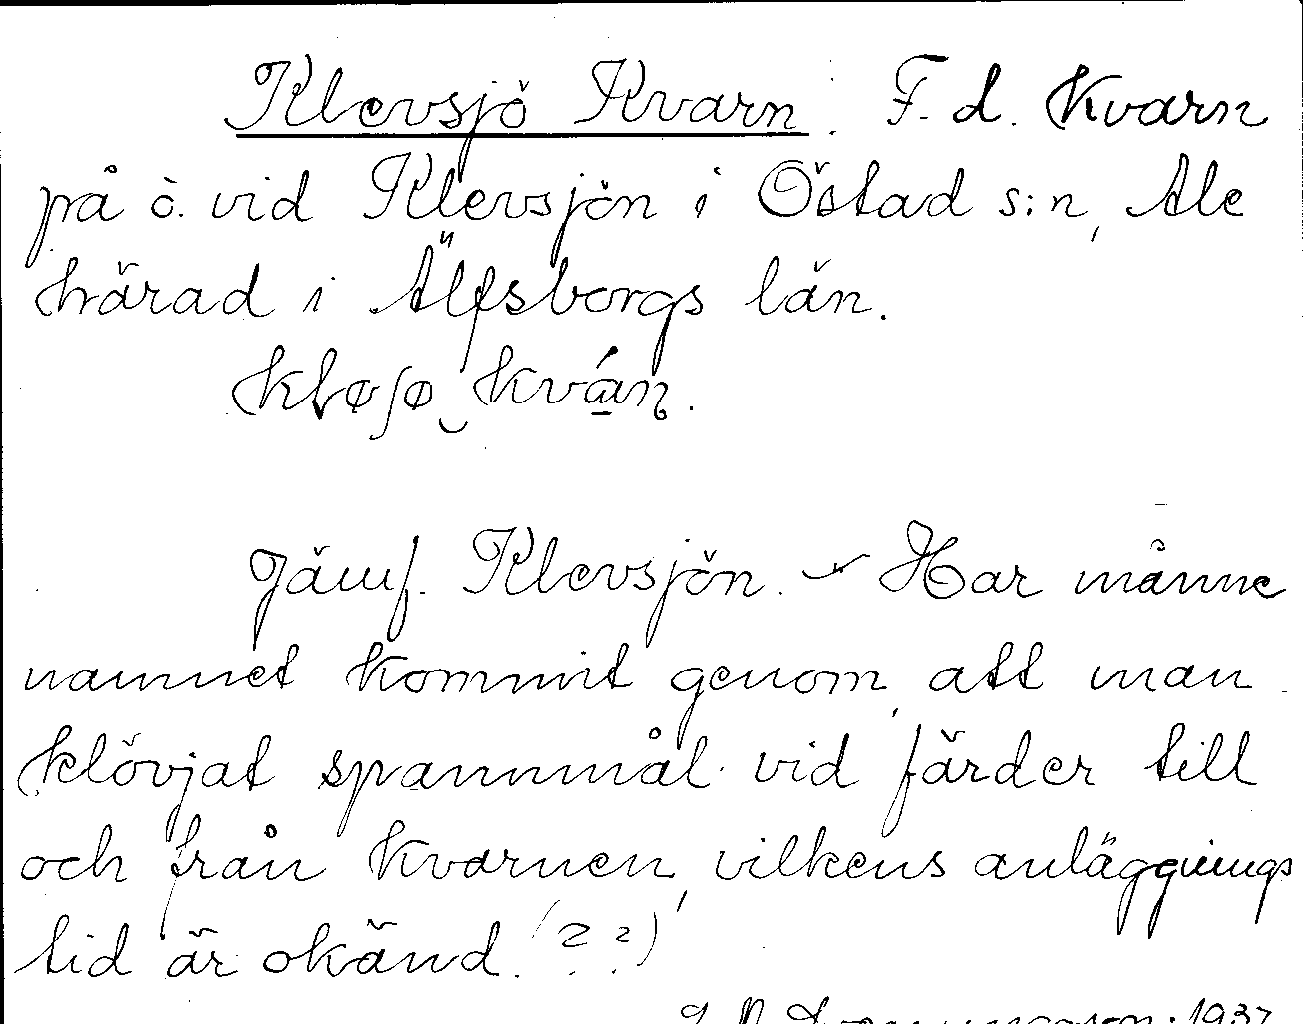 Klevsjö Kvarn. F.d. Kvarn
på ö. vid Klevsjön i Östad s:n, Ale
härad i Älfsborgs län.
Kløʃø‿kván.
Jämf. Klevsjön. — Har månne
namnet kommit genom, att man
klövjat spannmål vid färder till
och från kvarnen, vilkens anläggnings
tid är okänd. (? ?)
1937